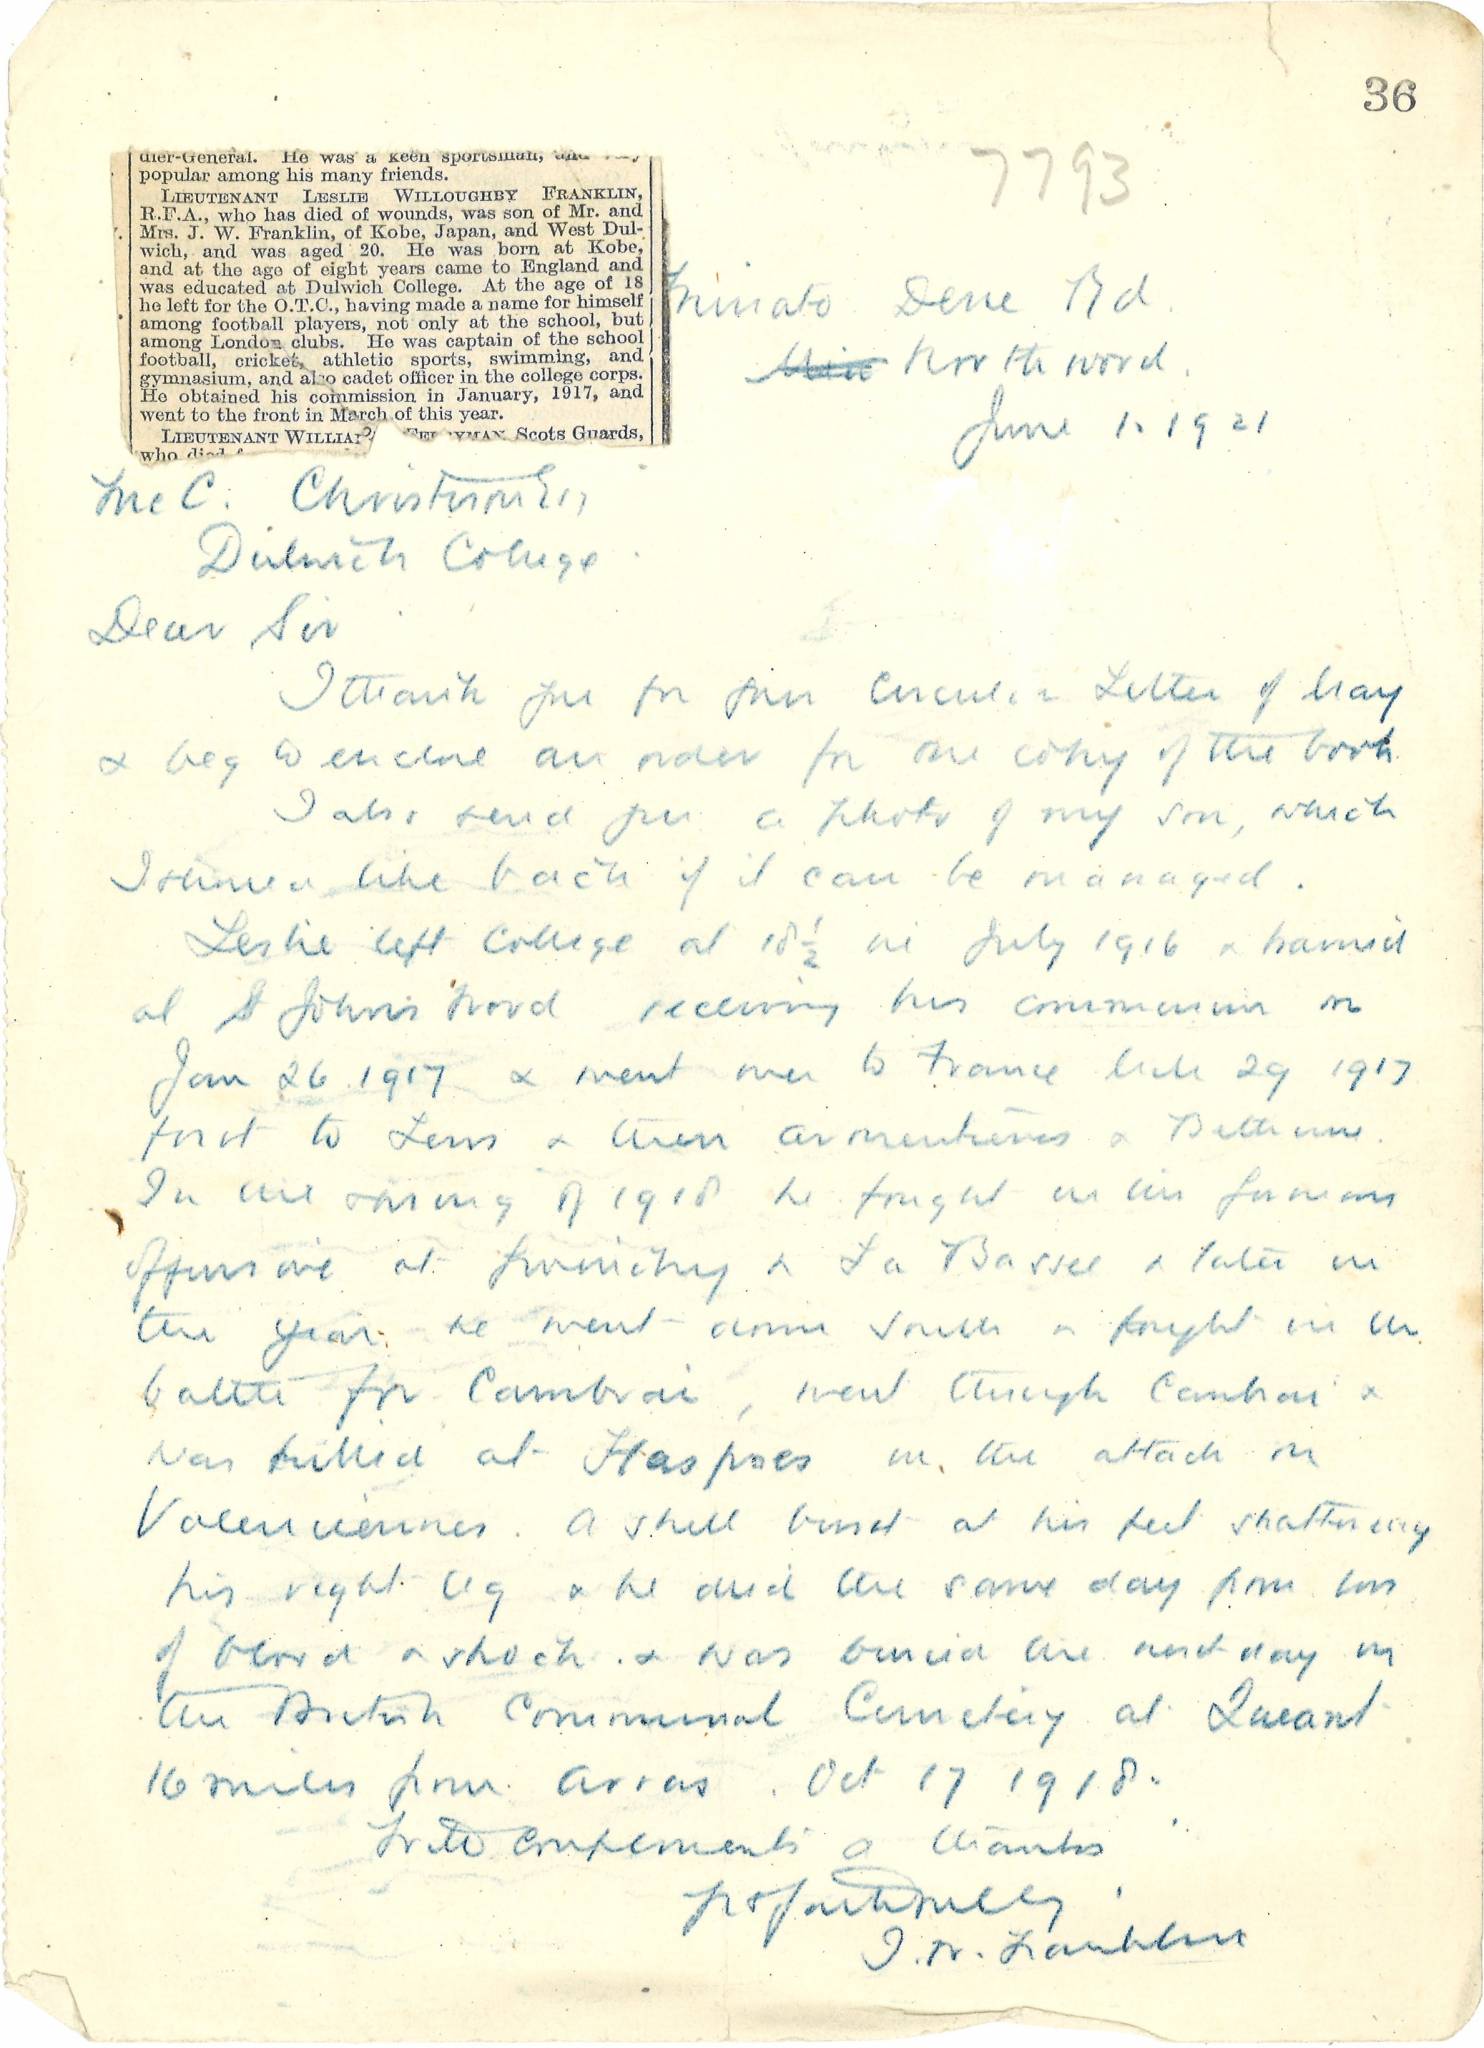 36
7793
dier-General. He was a keen sportsman, and very
popular among his many friends.
LIEUTENANT LESLIE WILLOUGHBY FRANKLIN,
R.F.A., who has died of wounds, was son of Mr. and
Mrs. J. W. Franklin, of Kobe, Japan, and West Dul-
wich, and was aged 20. He was born at Kobe,
and at the age of eight years came to England and
was educated at Dulwich College. At the age of 18
he left for the O.T.C., having made a name for himself
among football players, not only at the school, but
among London clubs. He was captain of the school
football, cricket, athletic sports, swimming, and
gymnasium, and also cadet officer in the college corps.
He obtained his commission in January, 1917, and
went to the front in March of this year.
LIEUTENANT Scots Guards,
who died
Dene Rd.
Northwood.
June 1. 1921
McC. Christison Esq
Dulwich College.
Dear Sir
I thank you for your Circular Letter of May
& beg to enclose an order for one copy of the book
I also send you a photo of my son, which
I should like back if it can be managed.
Leslie left College at 18 1/2 in July 1916 & trained
at St Johns Wood receiving his commission on
Jan 26 1917 & went over to France 29 1917
first to Lens & then Armentieres & Bethune.
In the spring of 1918 he fought in the famous
offensive at Givinchy & La Bassee & later in
the year he went down South & fought in the
battle for Cambrai, went through Cambrai &
was killed at Haspres in the attack on
Valenciennes. A shell burst at his feet shattering
his right leg & he died the same day from loss
of blood & shock. & was buried the next day in
the British Communal Cemetery at Queant
16 miles from Arras. Oct 17 1918.
With compliments & thanks
yrs faithfully
J. W. Franklin